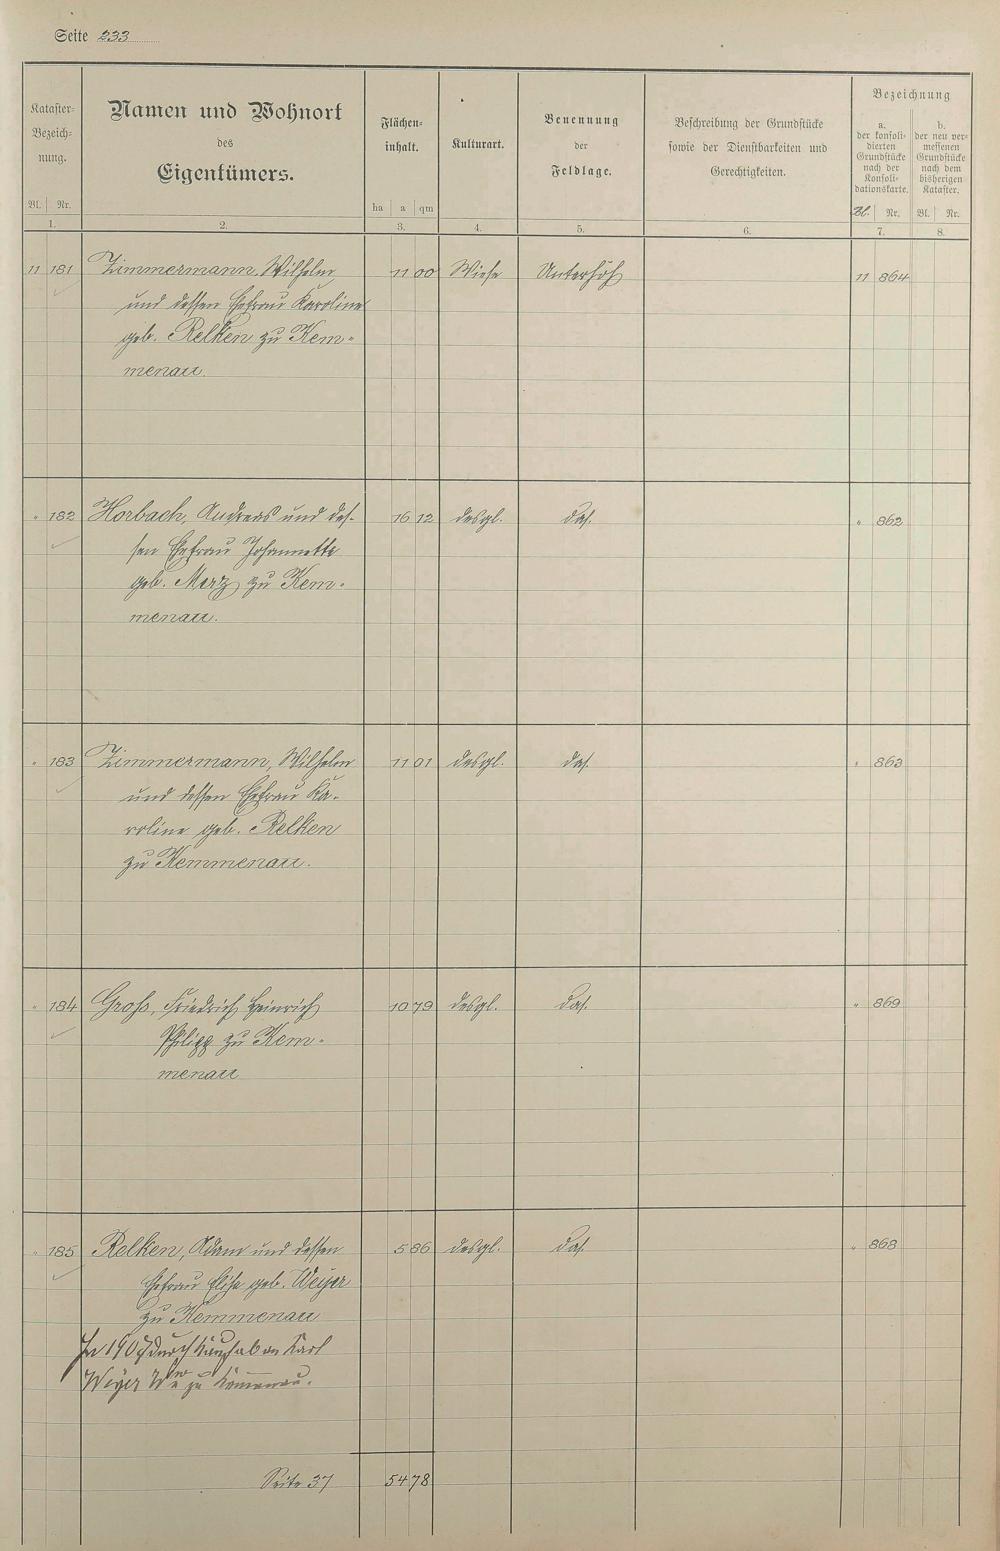 Seite 233
Kataster-
Bezeich-
nung.
Bl. Nr.
1.
Namen und Wohnort
des
Eigentümers.
2.
Flächen-
inhalt.
ha a qm
3.
Kulturart.
4.
Benennung
der
Feldlage.
5.
Beschreibung der Grundstücke
sowie der Dienstbarkeiten und
Gerechtigkeiten.
6.
Bezeichnung
a.
der konsoli-
dierten
Grundstücke
nach der
Konsoli-
dationskarte.
Bl. Nr.
7.
b.
der neu ver-
messenen
Grundstücke
nach dem
bisherigen
Kataster.
Bl. Nr.
8.
11 181 Zimmermann, Wilhelm 11 00 Wiese Unterhöh 11 864
und dessen Ehefrau Karoline
geb. Relken zu Kem-
menau.
" 182 Horbach, Andreas und des- 16 12 desgl. das. " 862
sen Ehefrau Johannette
geb. Merz zu Kem-
menau.
" 183 Zimmermann, Wilhelm 11 01 desgl. das. " 863
und dessen Ehefrau Ka-
roline geb. Relken
zu Kemmenau.
" 184 Groß, Friedrich Heinrich 10 79 desgl. das. " 869
Philipp zu Kem-
menau
" 185 Relken, Adam und dessen 5 86 desgl. das. " 868
Ehefrau Elise geb. Weyer
zu Kemmenau
In 1907 durch Kauf an Karl
Weyer zu Kemmenau.
Seite 37 54 78